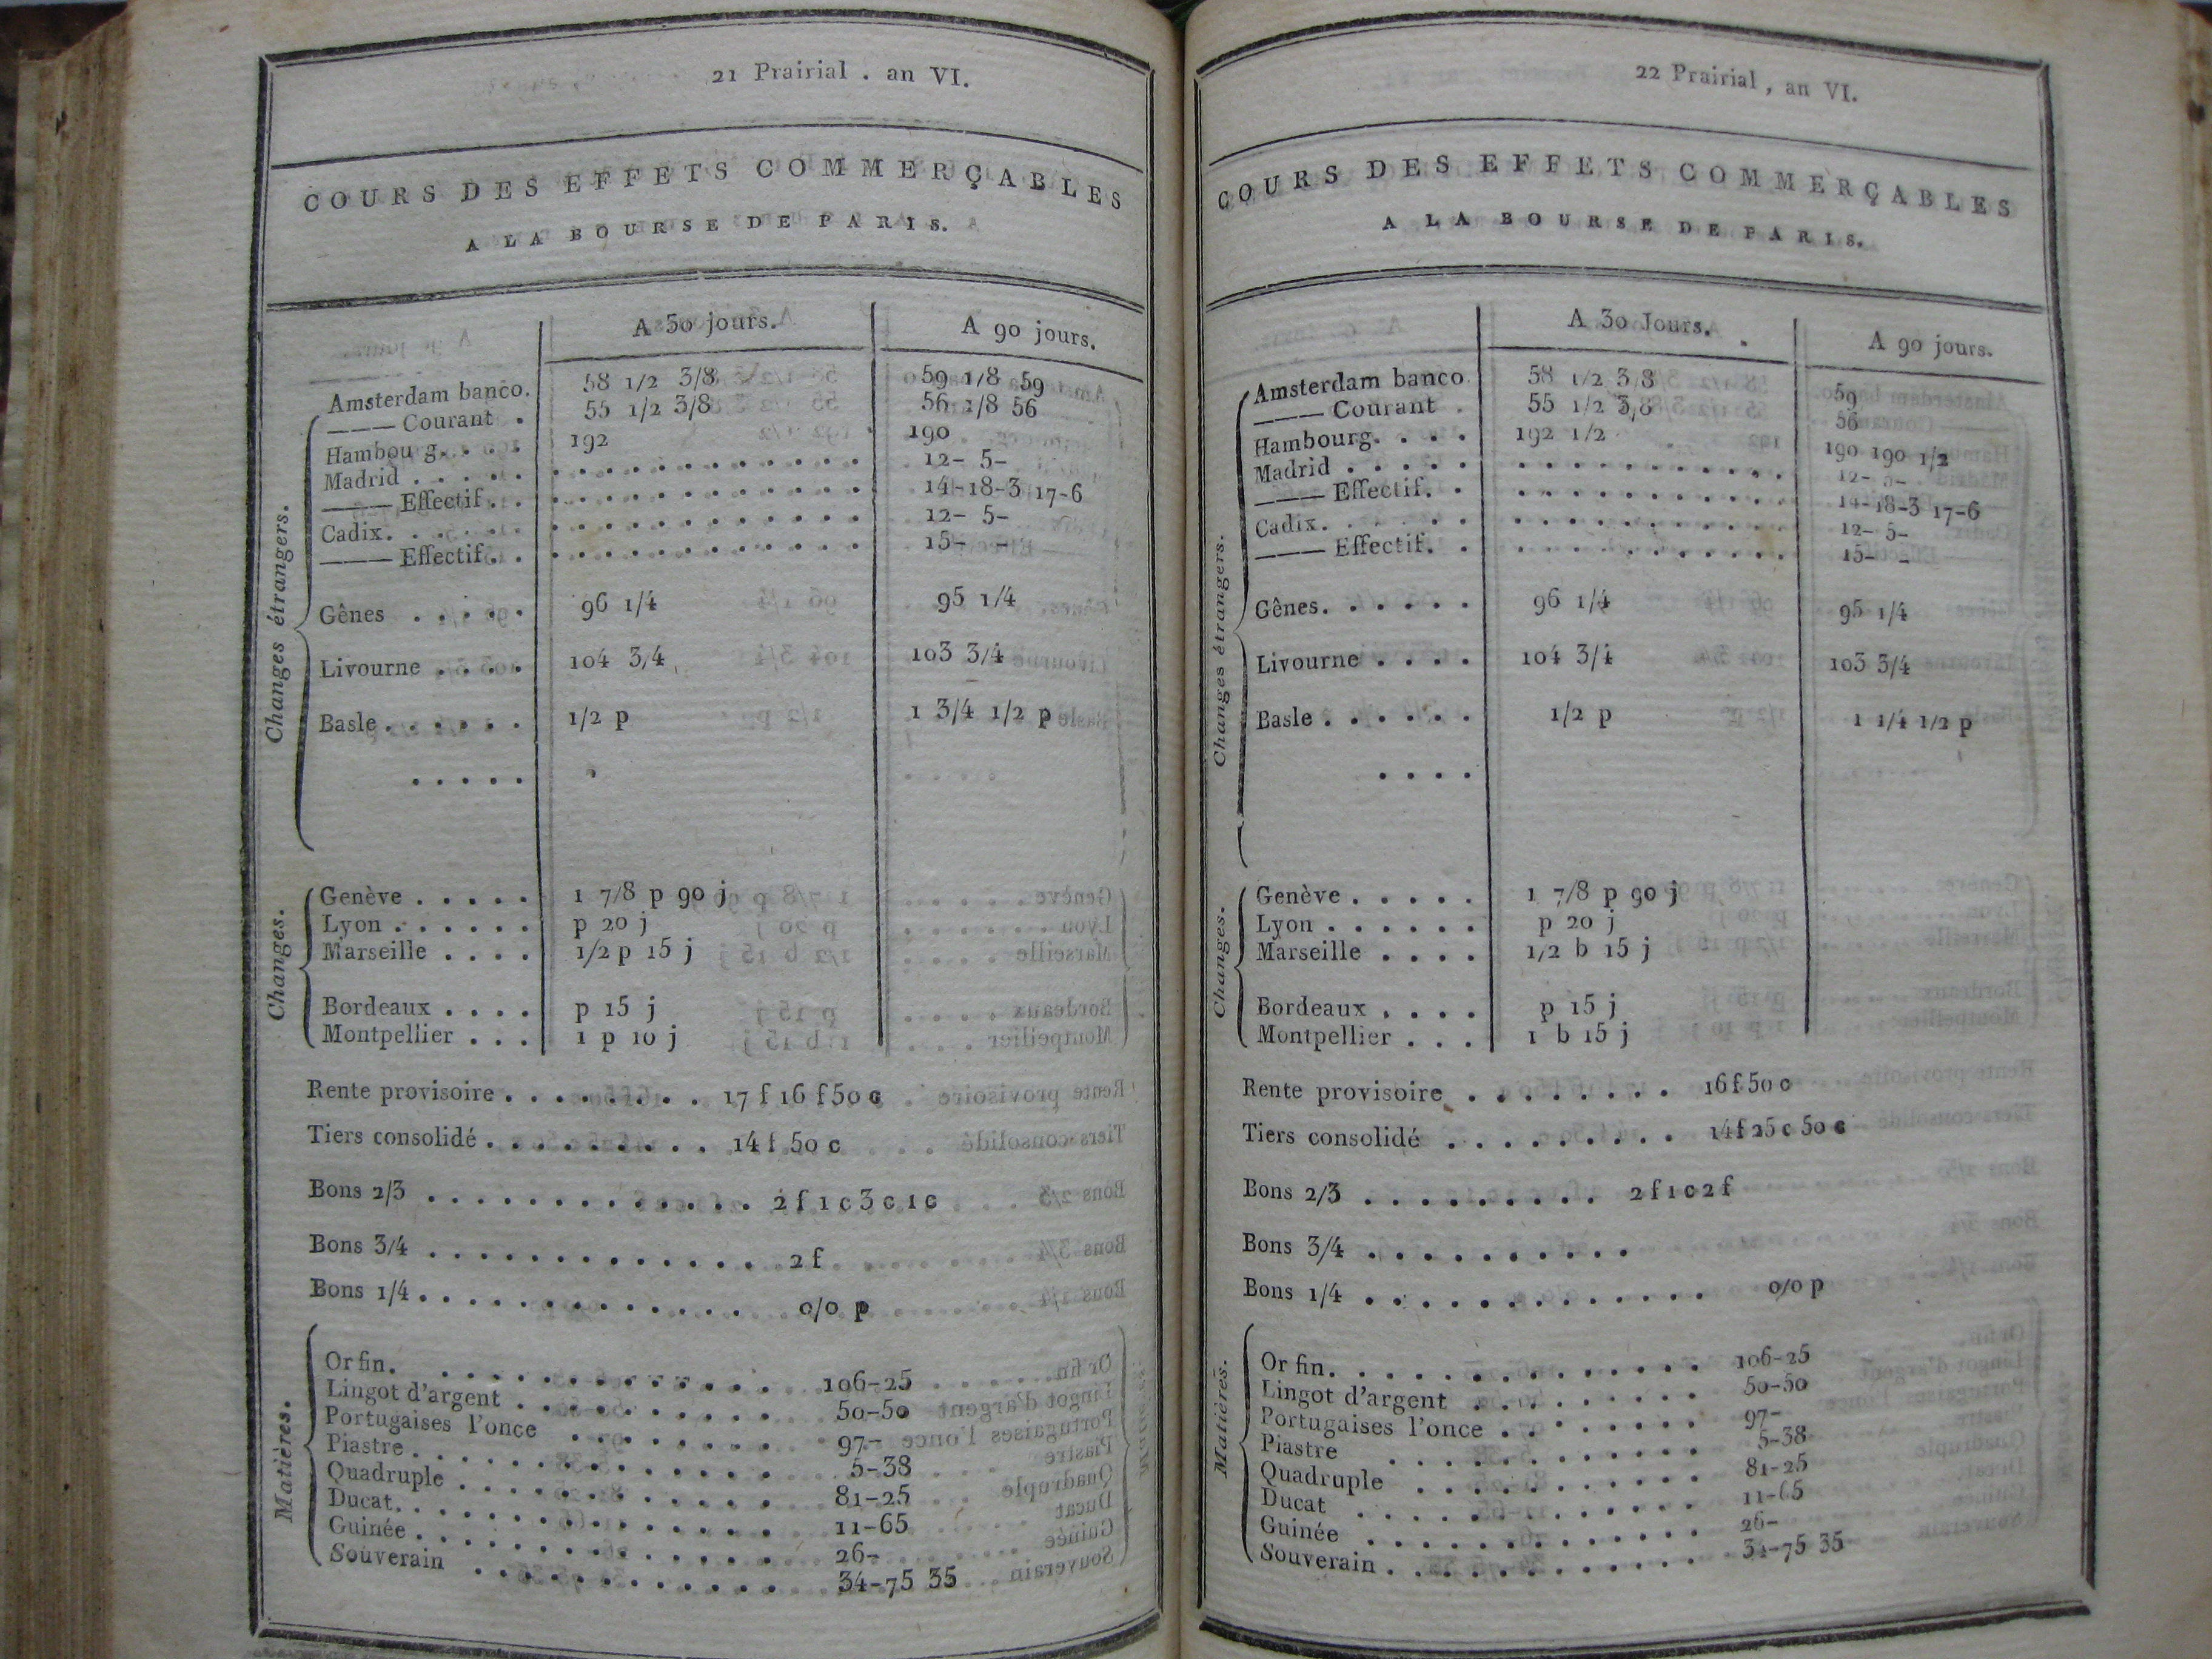 21 Prairial . an VI.
COURS DES EFFETS COMMERÇABLES
A LA BOURSE DE PARIS.
A 30 jours. A 90 jours.
Changes étrangers.
Amsterdam banco. 58 1/2 3/8 59 1/8 59
——— Courant . 55 1/2 3/8 56 1/8 56
Hambou g. . . . 192 190
Madrid . . . . . . . . . . . . . . . . . . 12- 5-
——— Effectif. . . . . . . . . . . . . . . . 14-18-3 17-6
Cadix. . . . . . . . . . . . . . . . . . . 12- 5-
——— Effectif. . . . . . . . . . . . . . . . 15- -
Gênes . . . . . 96 1/4 95 1/4
Livourne . . . . 104 3/4 103 3/4
Basle . . . . . . 1/2 p 1 3/4 1/2 p
. . . . .
Changes.
Genève . . . . . 1 7/8 p 90 j
Lyon . . . . . . p 20 j
Marseille . . . . 1/2 p 15 j
Bordeaux . . . . p 15 j
Montpellier . . . 1 p 10 j
Rente provisoire . . . . . . . . . 17 f 16 f 50 c
Tiers consolidé . . . . . . . . . . 14 f 50 c
Bons 2/3 . . . . . . . . . . . . . . 2 f 1 c 3 c 1 c
Bons 3/4 . . . . . . . . . . . . . . 2 f
Bons 1/4 . . . . . . . . . . . . . . 0/0 p
Matières.
Or fin. . . . . . . . . . . . . . . . 106-25
Lingot d'argent . . . . . . . . . . . 50-50
Portugaises l'once . . . . . . . . . 97-
Piastre . . . . . . . . . . . . . . . 5-38
Quadruple . . . . . . . . . . . . . . 81-25
Ducat. . . . . . . . . . . . . . . . 11-65
Guinée . . . . . . . . . . . . . . . 26-
Souverain . . . . . . . . . . . . . 34-75 35
22 Prairial, an VI.
COURS DES EFFETS COMMERÇABLES
A LA BOURSE DE PARIS.
A 30 Jours. A 90 jours.
Changes étrangers.
Amsterdam banco. 58 1/2 3/8 59
——— Courant . 55 1/2 3/8 56
Hambourg. . . . 192 1/2 190 190 1/2
Madrid . . . . . . . . . . . . . . . . . 12- 5-
——— Effectif. . . . . . . . . . . . . . . 14-18-3 17-6
Cadix. . . . . . . . . . . . . . . . . . 12- 5-
——— Effectif. . . . . . . . . . . . . . . 15- -
Gênes. . . . . . 96 1/4 95 1/4
Livourne . . . . 104 3/4 103 3/4
Basle . . . . . . 1/2 p 1 1/4 1/2 p
. . . .
Changes.
Genève . . . . . 1 7/8 p 90 j
Lyon . . . . . . p 20 j
Marseille . . . . 1/2 b 15 j
Bordeaux . . . . p 15 j
Montpellier . . . 1 b 15 j
Rente provisoire . . . . . . . . . 16 f 50 c
Tiers consolidé . . . . . . . . . . 14 f 25 c 50 c
Bons 2/3 . . . . . . . . . . 2 f 1 c 2 f
Bons 3/4 . . . . . . . . . . .
Bons 1/4 . . . . . . . . . . . . . 0/0 p
Matières.
Or fin. . . . . . . . . . . . . . . 106-25
Lingot d'argent . . . . . . . . . . 50-50
Portugaises l'once . . . . . . . . 97-
Piastre . . . . . . . . . . . . . 5-38
Quadruple . . . . . . . . . . . . 81-25
Ducat . . . . . . . . . . . . . . 11-65
Guinée . . . . . . . . . . . . . . 26-
Souverain . . . . . . . . . . . . . 34-75 35